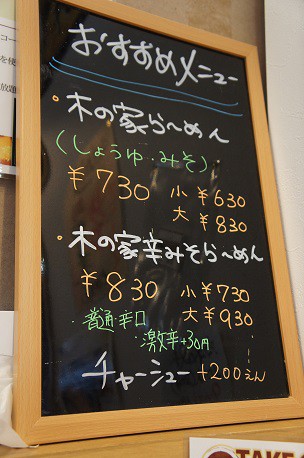 おすすめメニュー
・木の家らーめん
(しょうゆ・みそ)
¥730 小 ¥630
大 ¥830
・木の家辛みそらーめん
¥830 小 ¥730
大 ¥930
・普通・辛口
・激辛+30円
チャーシュー +200えん
TAKE